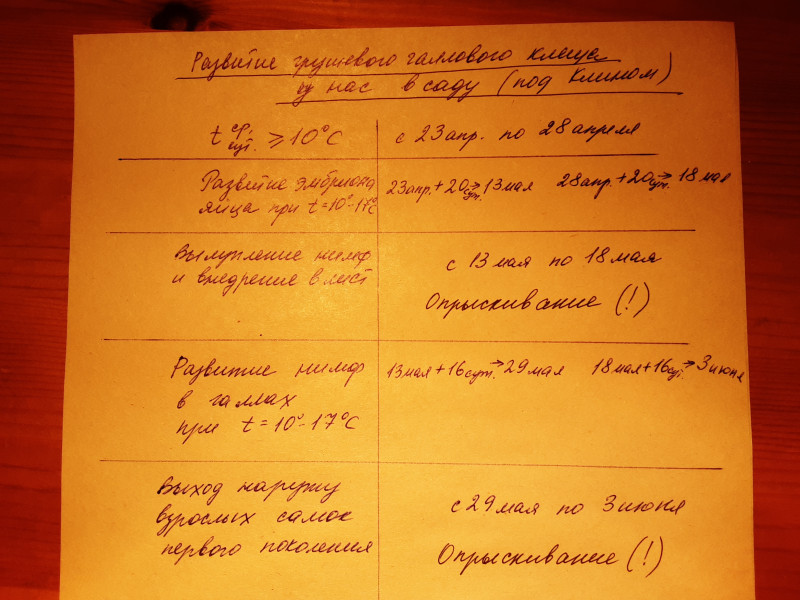 Развитие грушевого галлового клеща
у нас в саду (под Клином)
t ср. сут. ≥ 10°C
с 23 апр. по 28 апреля
Развитие эмбриона
яйца при t = 10°-17°C
23 апр. + 20 сут. → 13 мая 28 апр. + 20 сут. → 18 мая
Вылупление нимф
и внедрение в лист
с 13 мая по 18 мая
Опрыскивание (!)
Развитие нимф
в галлах
при t = 10°-17°C
13 мая + 16 сут. → 29 мая 18 мая + 16 сут. → 3 июня
Выход наружу
взрослых самок
первого поколения
с 29 мая по 3 июня
Опрыскивание (!)